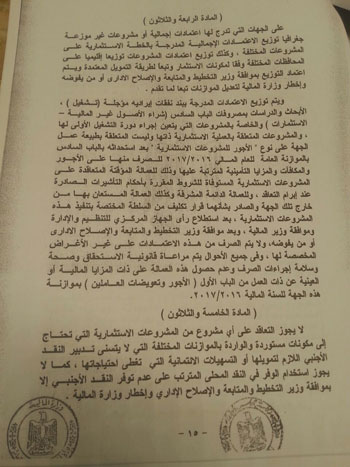 ( المادة الرابعة والثلاثون )
على الجهات التي تدرج لها اعتمادات إجمالية أو مشروعات غير موزعة
جغرافيا توزيع الاعتمادات الإجمالية المدرجة بالخطة الاستثمارية على
المشروعات المختلفة ، وكذلك توزيع اعتمادات المشروعات توزيعا إقليميا على
المحافظات المختلفة وفقا لمكونات الاستثمار وتبعا لطريقة التمويل المعتمدة ويتم
اعتماد التوزيع بموافقة وزير التخطيط والمتابعة والإصلاح الادارى أو من يفوضه
وإخطار وزارة المالية لتعديل الموازنات تبعا لما تقدم .
ويتم توزيع الاعتمادات المدرجة ببند نفقات إيراديه مؤجلة ( تشغيل ) ،
الأبحاث والدراسات بمصروفات الباب السادس ( شراء الأصول غير المالية –
الاستثمارات ) والخاصة بالمشروعات التي يتعين إجراء دورة التشغيل الأولى لها
، والمشروعات المتعلقة بالعملية الاستثمارية ذاتها وليست المتعلقة بطبيعة عمل
الجهة على نوع " الأجور للمشروعات الاستثمارية " بعد استحداثه بالباب السادس
بالموازنة العامة للعام المالي ٢٠١٧/٢٠١٦ للصرف منها على الأجور
والمكافات والمزايا التأمينية المترتبة عليها وذلك للعمالة المؤقتة المتعاقدة على
المشروعات الاستثمارية المستوفاة للشروط المقررة بأحكام التأشيرات الصادرة
عند إبرام التعاقد ، وللعمالة الدائمة المشرفة وكذلك العمالة المستعان بها من
خارج تلك الجهة والصادر بشأنهما قرار تكليف من السلطة المختصة بتنفيذ هذه
المشروعات الاستثمارية ، بعد استطلاع رأى الجهاز المركزي للتنظيم والإدارة
وموافقة وزير المالية ، وبعد موافقة وزير التخطيط والمتابعة والإصلاح الادارى
أو من يفوضه، ولا يتم الصرف من هذه الاعتمادات على غير الأغراض
المخصصة لها ، وفى جميع الأحوال يتم مراعاة قانونية الاستحقاق وصحة
وسلامة إجراءات الصرف وعدم حصول هذه العمالة على ذات المزايا المالية أو
العينية عن ذات العمل من الباب الأول ( الأجور وتعويضات العاملين ) بموازنة
هذه الجهة للسنة المالية ٢٠١٧/٢٠١٦ .
( المادة الخامسة والثلاثون )
لا يجوز التعاقد على أي مشروع من المشروعات الاستثمارية التي تحتاج
إلى مكونات مستوردة والواردة بالموازنات المختلفة التي لا يتسنى تدبير النقد
الأجنبي اللازم لتمويلها أو التسهيلات الائتمانية التي تغطى احتياجاتها ، كما لا
يجوز استخدام الوفر في النقد المحلى المترتب على عدم توفر النقد الأجنبي إلا
بموافقة وزير التخطيط والمتابعة والإصلاح الإداري وإخطار وزارة المالية .
– ١٥ –